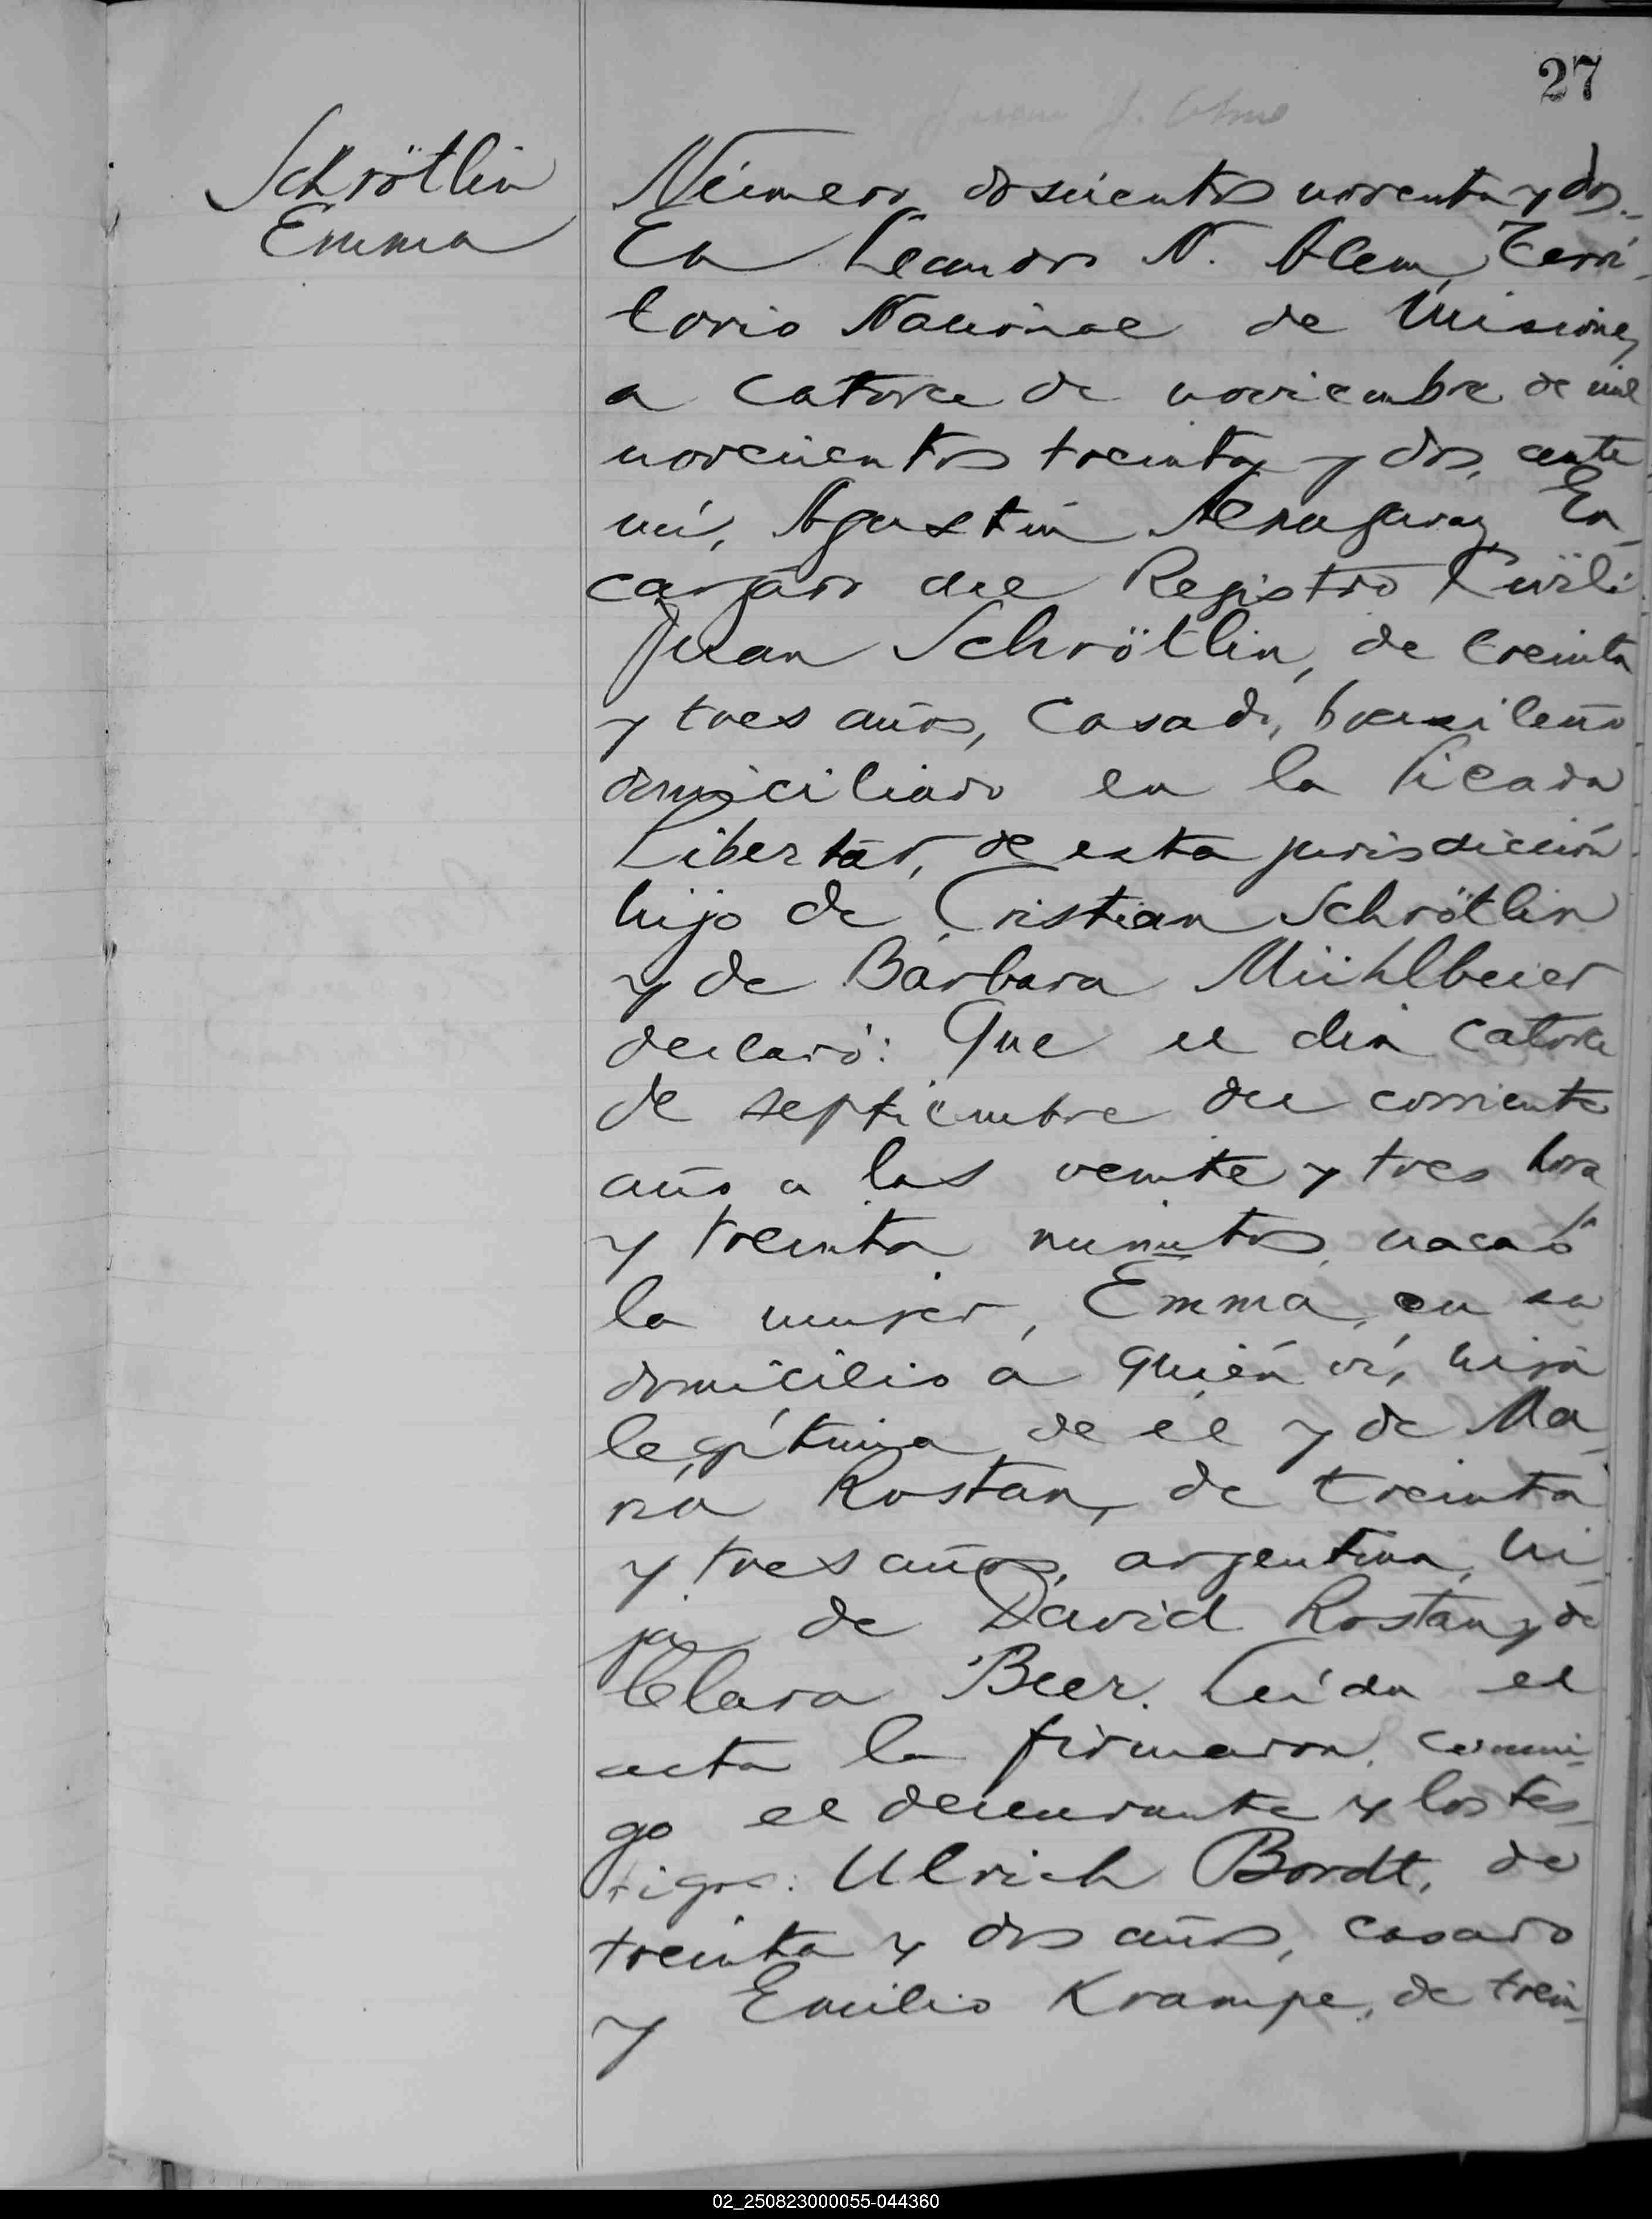 27
Schrötlin
Emma
Número doscientos noventa y dos.-
En Leandro N. Alem, Terri-
torio Nacional de Misiones,
a catorce de noviembre de mil
novecientos treinta y dos, ante
mí, Agustín En-
cargado del Registro Civil:
Juan Schrötlin, de treinta
y tres años, casado, brasileño
domiciliado en la Picada
Libertad, de esta jurisdicción
hijo de Cristian Schrötlin
y de Bárbara Mühlbeier
declaró: Que el día catorce
de septiembre del corriente
año a las veinte y tres hora
y treinta minutos nació
la mujer, Emma, en su
domicilio a quién ví, hija
legítima de él y de Ma-
ría Rostan, de treinta
y tres años, argentina, hi-
ja de David Rostan y de
Clara Beer. Leída el
acta la firmaron conmi-
go el declarante y los tes-
tigos: Ulrich Bordt, de
treinta y dos años, casado
y Emilio Krampe, de trein-
02_250823000055-044360